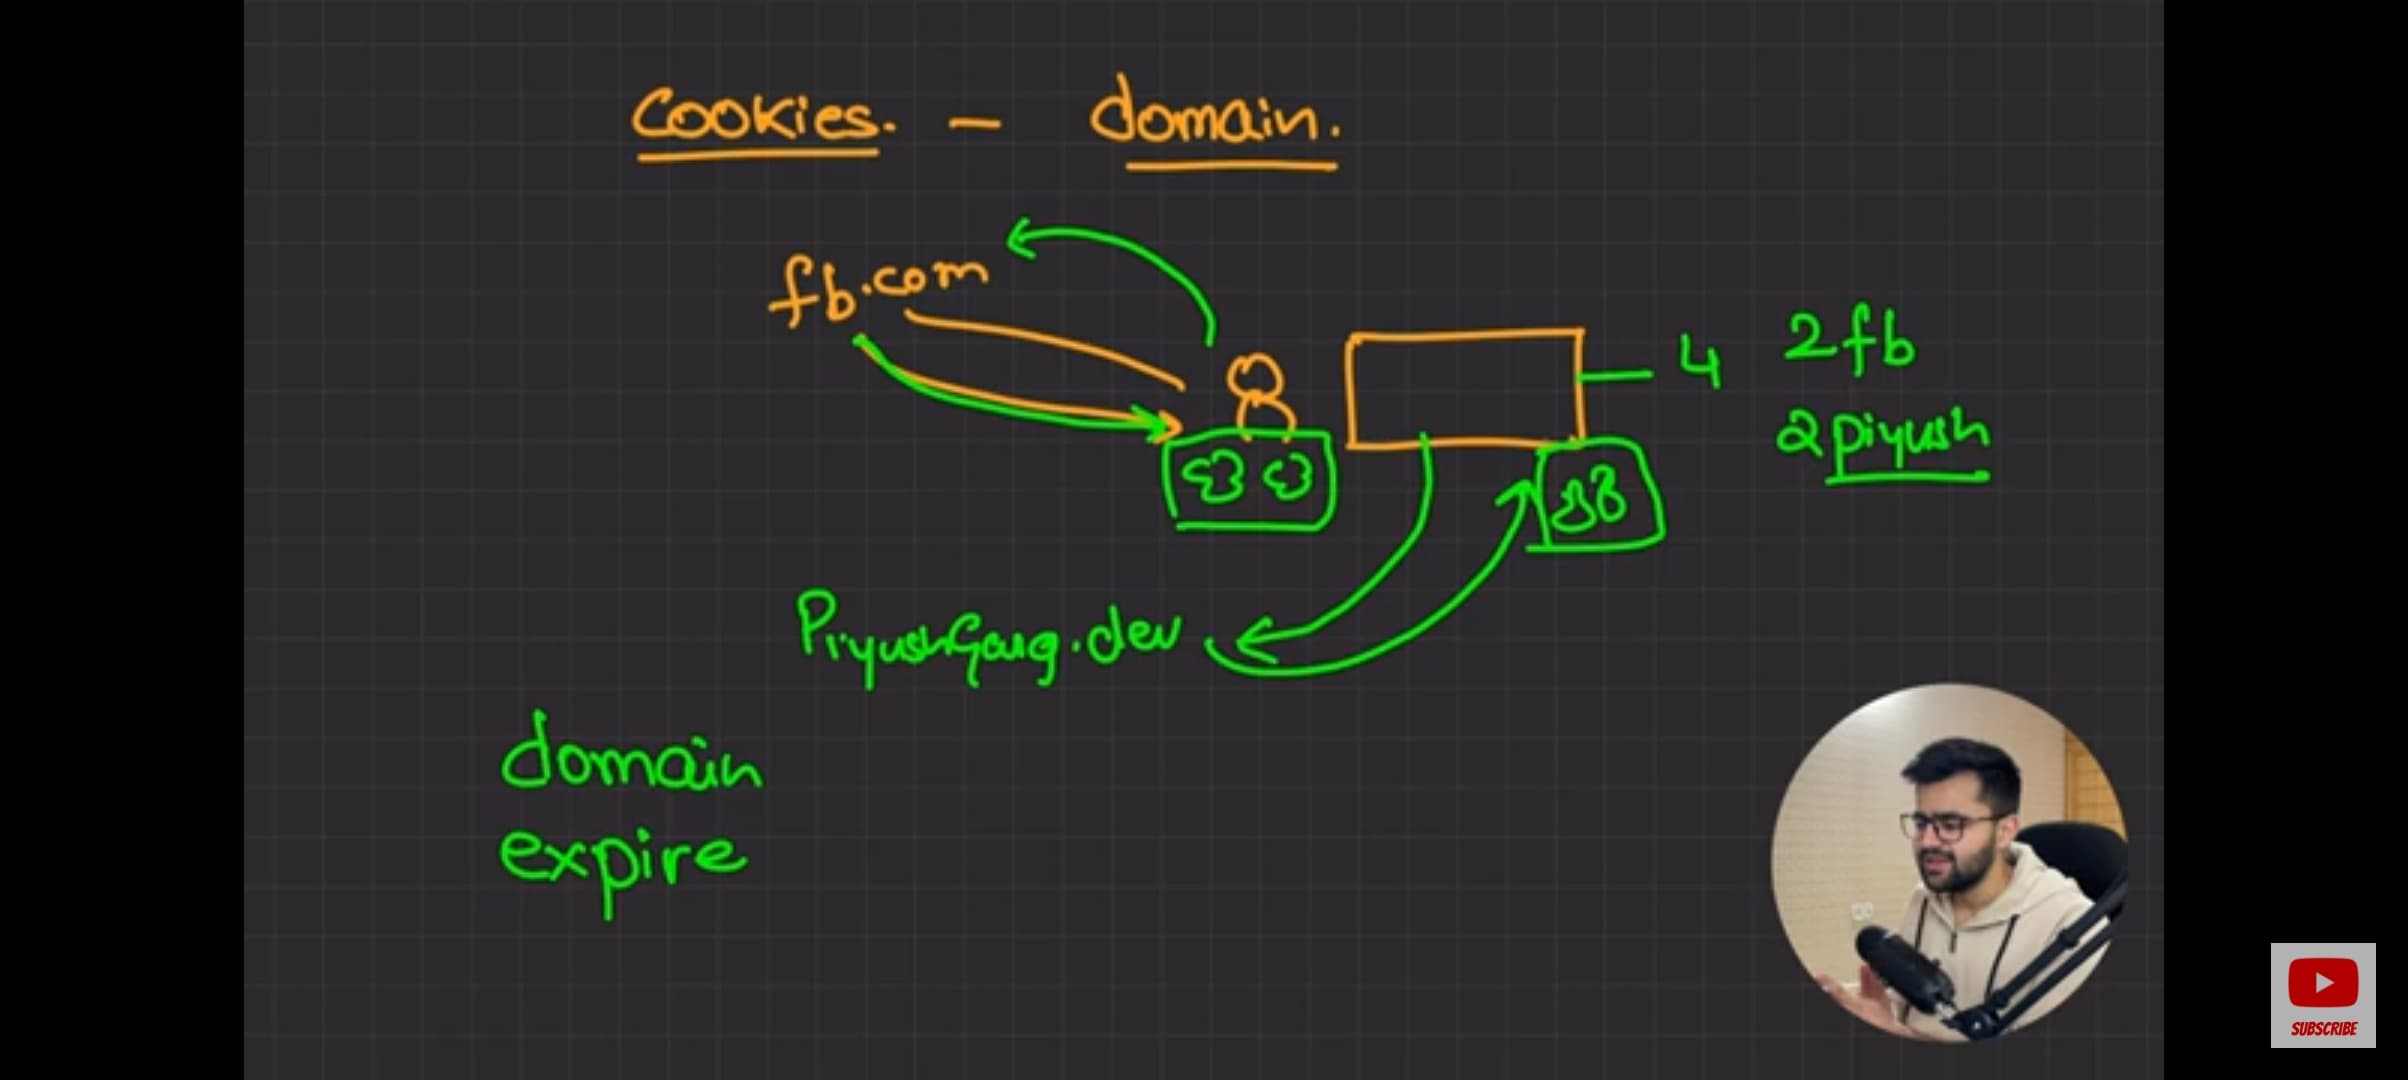 Cookies. - domain.
fb.com
4 2fb
2 piyush
PiyushGarg.dev
domain
expire
SUBSCRIBE